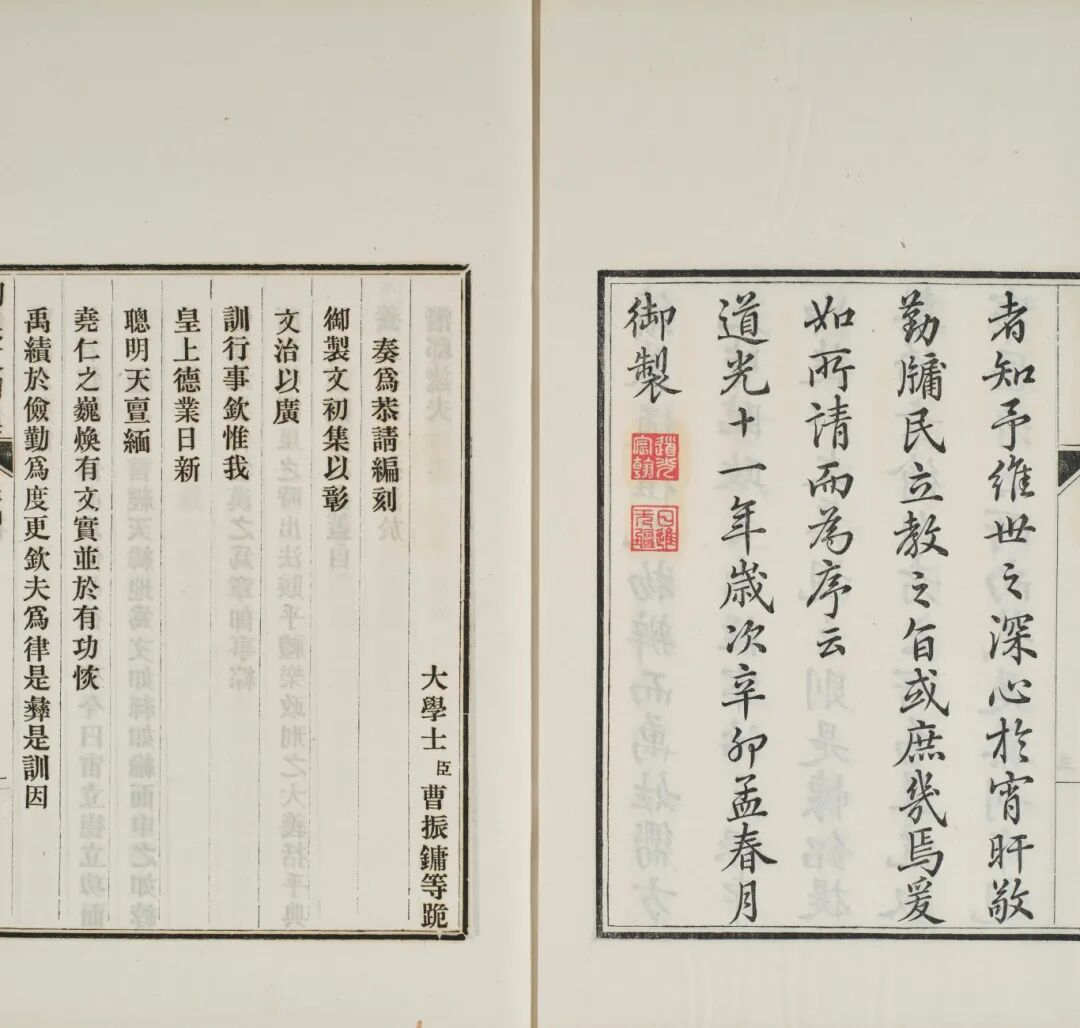 者知予維世之深心於宵旰敬
勤牖民立教之旨或庶幾焉爰
如所請而為序云
道光十一年歲次辛卯孟春月
御製
道光
宸翰
日進
无疆
大學士臣曹振鏞等跪
奏爲恭請編刻
御製文初集以彰
文治以廣
訓行事欽惟我
皇上德業日新
聰明天亶緬
堯仁之巍煥有文實並於有功恢
禹績於儉勤爲度更欽夫爲律是彝是訓因